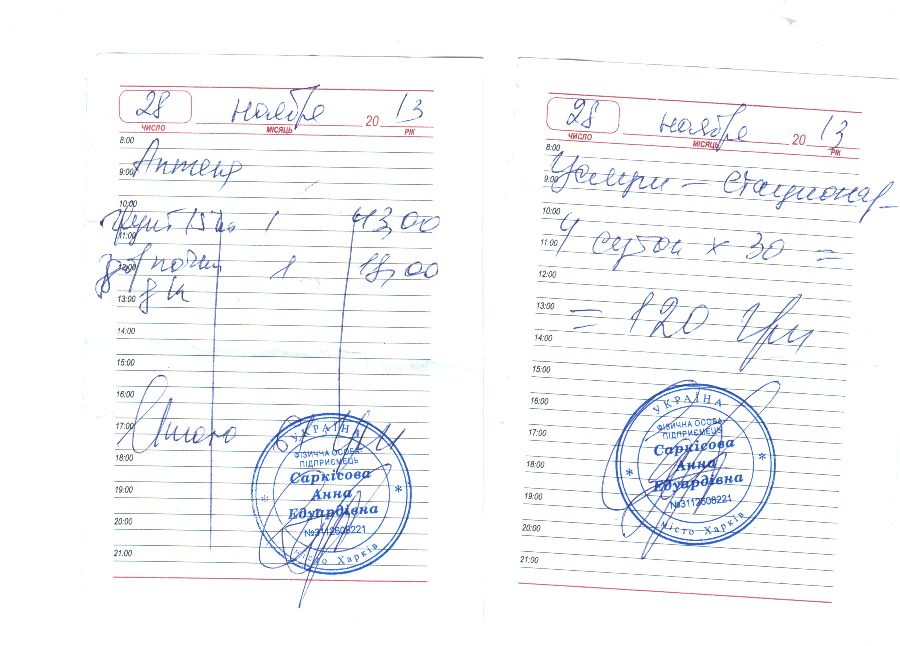 28 ноября 20 13
ЧИСЛО МІСЯЦЬ РІК
8:00
9:00
10:00
1 43,00
11:00
12:00
почки 1 18,00
13:00
14:00
15:00
16:00
17:00
Итого
18:00
19:00
20:00
21:00
УКРАЇНА
ФІЗИЧНА ОСОБА-
ПІДПРИЄМЕЦЬ
Саркісова
Анна
Едуардівна
№3112608221
місто Харків
28 ноября 20 13
ЧИСЛО МІСЯЦЬ РІК
8:00
9:00
стационар
10:00
11:00
4 суток х 30 =
12:00
13:00
= 120 грн
14:00
15:00
16:00
17:00
18:00
19:00
20:00
21:00
УКРАЇНА
ФІЗИЧНА ОСОБА-
ПІДПРИЄМЕЦЬ
Саркісова
Анна
Едуардівна
№3112608221
місто Харків